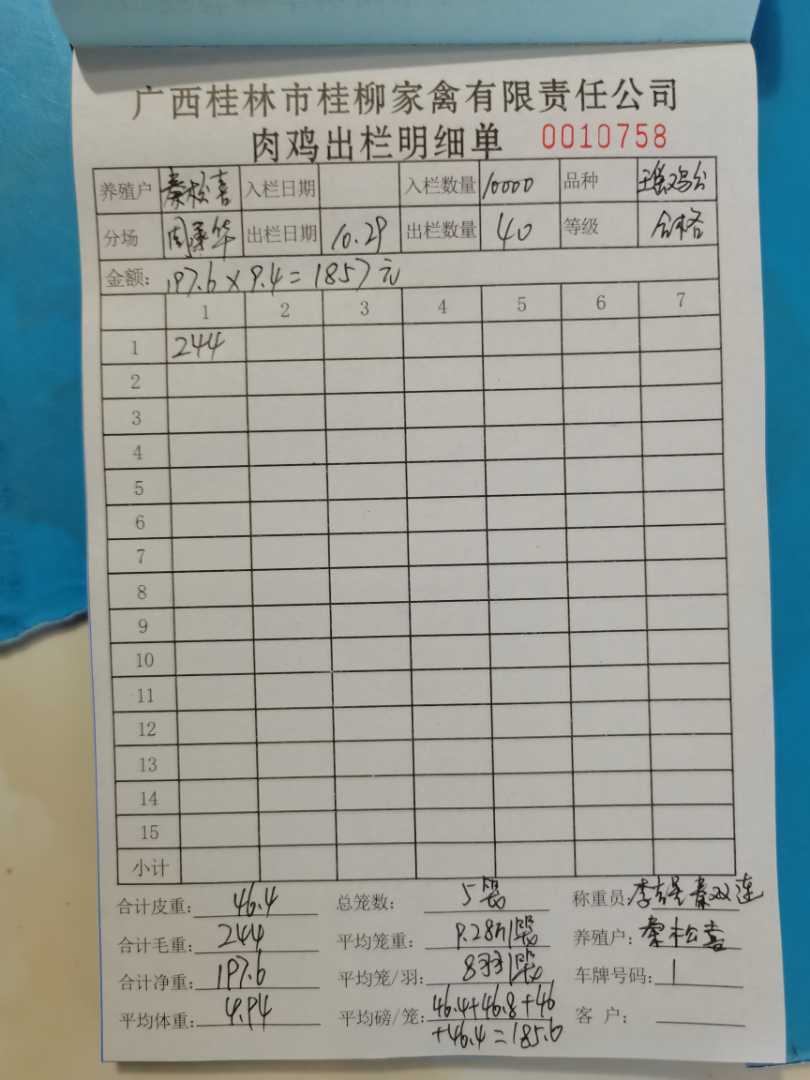 广西桂林市桂柳家禽有限责任公司
肉鸡出栏明细单 0010758
养殖户 秦松喜 入栏日期 入栏数量 10000 品种
分场 出栏日期 10.29 出栏数量 40 等级 合格
金额: 197.6×9.4=1857元
1 2 3 4 5 6 7
1 244
2
3
4
5
6
7
8
9
10
11
12
13
14
15
小计
合计皮重: 46.4 总笼数: 5 称重员: 秦双连
合计毛重: 244 平均笼重: 9.28 养殖户: 秦松喜
合计净重: 197.6 平均笼/羽: 8羽 车牌号码: 1
平均体重: 4.94 平均磅/笼: 46.4+46.8+46 客 户:
+46.4=185.6